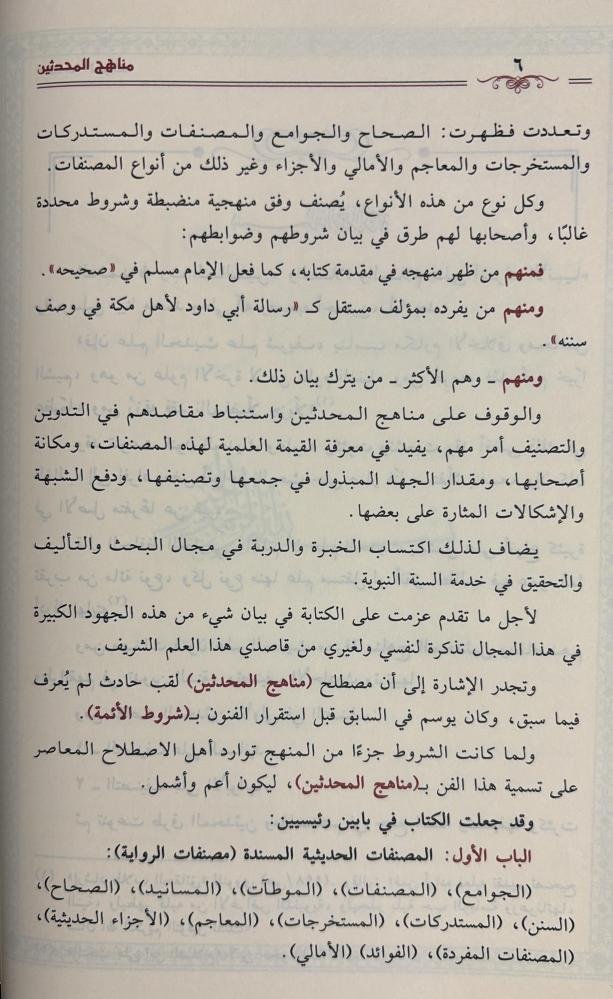 ٦
مناهج المحدثين
وتعددت فظهرت: الصحاح والجوامع والمصنفات والمستدركات
والمستخرجات والمعاجم والأمالي والأجزاء وغير ذلك من أنواع المصنفات.
وكل نوع من هذه الأنواع، يُصنف وفق منهجية منضبطة وشروط محددة
غالبًا، وأصحابها لهم طرق في بيان شروطهم وضوابطهم:
فمنهم من ظهر منهجه في مقدمة كتابه، كما فعل الإمام مسلم في «صحيحه».
ومنهم من يفرده بمؤلف مستقل كـ «رسالة أبي داود لأهل مكة في وصف
سننه».
ومنهم ـ وهم الأكثر ـ من يترك بيان ذلك.
والوقوف على مناهج المحدثين واستنباط مقاصدهم في التدوين
والتصنيف أمر مهم، يفيد في معرفة القيمة العلمية لهذه المصنفات، ومكانة
أصحابها، ومقدار الجهد المبذول في جمعها وتصنيفها، ودفع الشبهة
والإشكالات المثارة على بعضها.
يضاف لذلك اكتساب الخبرة والدربة في مجال البحث والتأليف
والتحقيق في خدمة السنة النبوية.
لأجل ما تقدم عزمت على الكتابة في بيان شيء من هذه الجهود الكبيرة
في هذا المجال تذكرة لنفسي ولغيري من قاصدي هذا العلم الشريف.
وتجدر الإشارة إلى أن مصطلح (مناهج المحدثين) لقب حادث لم يُعرف
فيما سبق، وكان يوسم في السابق قبل استقرار الفنون بـ(شروط الأئمة).
ولما كانت الشروط جزءًا من المنهج توارد أهل الاصطلاح المعاصر
على تسمية هذا الفن بـ(مناهج المحدثين)، ليكون أعم وأشمل.
وقد جعلت الكتاب في بابين رئيسيين:
الباب الأول: المصنفات الحديثية المسندة (مصنفات الرواية):
(الجوامع)، (المصنفات)، (الموطآت)، (المسانيد)، (الصحاح)،
(السنن)، (المستدركات)، (المستخرجات)، (المعاجم)، (الأجزاء الحديثية)،
(المصنفات المفردة)، (الفوائد) (الأمالي).